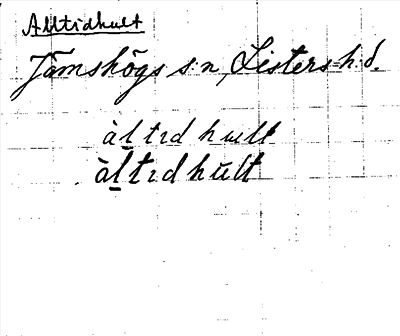 Alltidhult
Jämshögs s:n, Listers h:d.
àltid hult
àltid hult